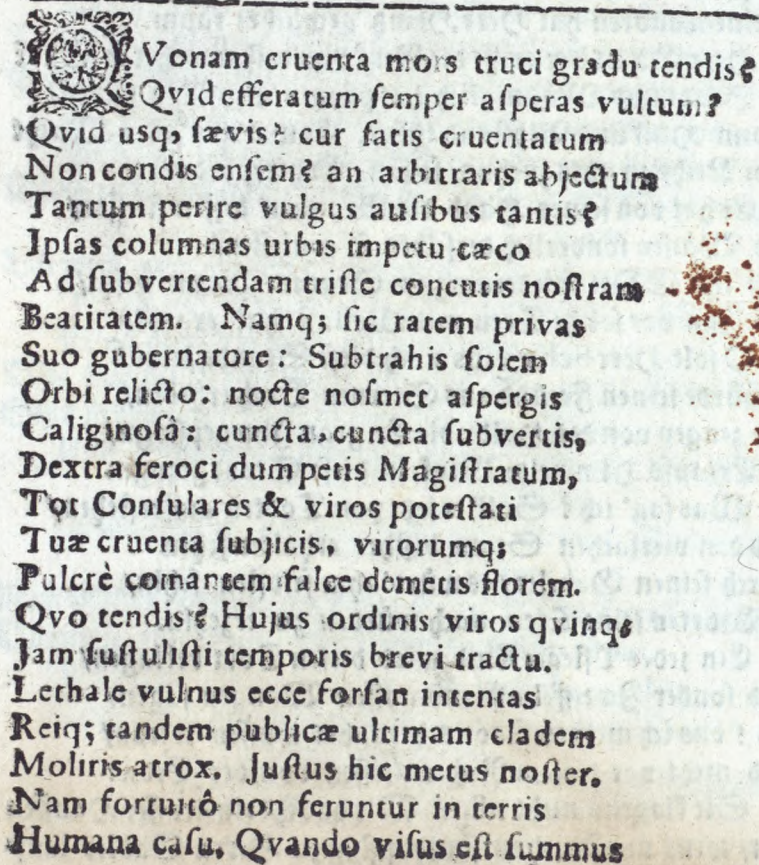 QVonam cruenta mors truci gradu tendis?
Qvid efferatum ſemper aſperas vultum?
Qvid usq; ſævis? cur fatis cruentatum
Non condis enſem? an arbitraris abjectum
Tantum perire vulgus auſibus tantis?
Jpſas columnas urbis impetu cæco
Ad ſubvertendam triſte concutis noſtram
Beatitatem. Namq; ſic ratem privas
Suo gubernatore. Subtrahis ſolem
Orbi relicto: nocte noſmet aſpergis
Caliginoſâ: cuncta, cuncta ſubvertis,
Dextra feroci dum petis Magiſtratum,
Tot Conſulares & viros poteſtati
Tuæ cruenta ſubjicis, virorumq;
Pulcrè comantem falce demetis florem.
Qvo tendis? Hujus ordinis viros qvinq;
Jam ſuſtuliſti temporis brevi tractu.
Lethale vulnus ecce forſan intentas
Reiq; tandem publicæ ultimam cladem
Moliris atrox. Juſtus hic metus noſter.
Nam fortuitô non feruntur in terris
Humana caſu. Qvando viſus eſt ſummus